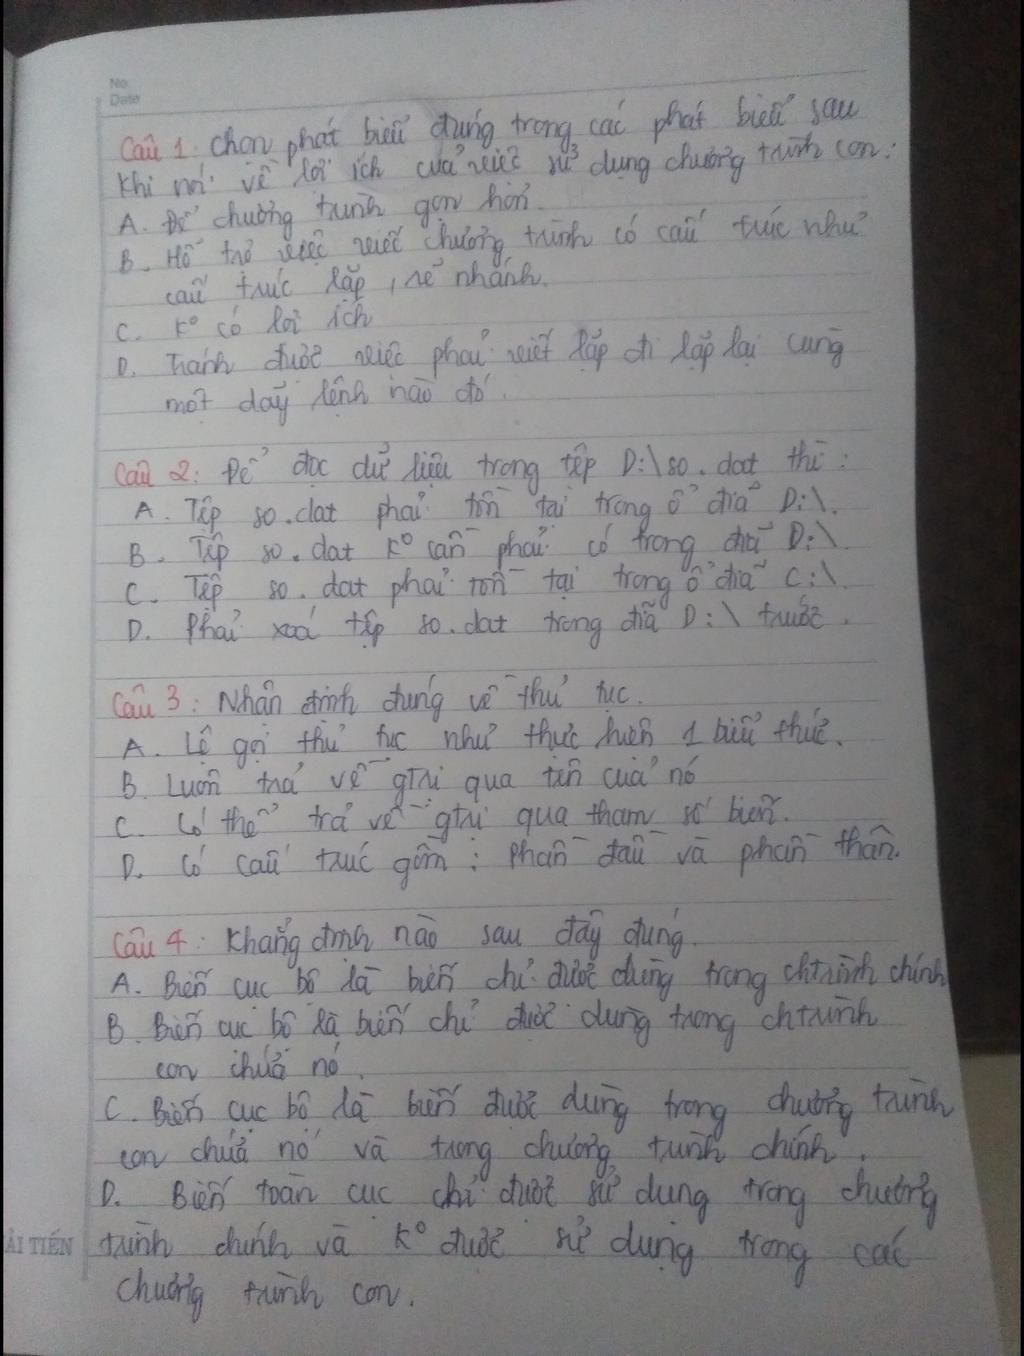 No
Date
Câu 1: Chọn phát biểu đúng trong các phát biểu sau
khi nói về lợi ích của việc sử dụng chương trình con:
A. Để chương trình gọn hơn.
B. Hỗ trợ việc viết chương trình có cấu trúc như
cấu trúc lặp, rẽ nhánh.
C. K° có lợi ích
D. Tránh được việc phải viết lặp đi lặp lại cùng
một dãy lệnh nào đó.
Câu 2: Để đọc dữ liệu trong tệp D:\so.dat thì:
A. Tệp so.dat phải tồn tại trong ổ đĩa D:\.
B. Tệp so.dat k° cần phải có trong đĩa D:\
C. Tệp so.dat phải tồn tại trong ổ đĩa C:\.
D. Phải xoá tệp so.dat trong đĩa D:\ trước.
Câu 3: Nhận định đúng về thủ tục.
A. Lệ gọi thủ tục như thực hiện 1 biểu thức.
B. Luôn trả về gtrị qua tên của nó
C. Có thể trả về gtrị qua tham số biến.
D. Có cấu trúc gồm: phần đầu và phần thân.
Câu 4: Khẳng định nào sau đây đúng.
A. Biến cục bộ là biến chỉ được dùng trong chtrình chính
B. Biến cục bộ là biến chỉ được dùng trong chtrình
con chứa nó.
C. Biến cục bộ là biến được dùng trong chương trình
con chứa nó và trong chương trình chính.
D. Biến toàn cục chỉ được sử dụng trong chương
ẢI TIẾN trình chính và k° được sử dụng trong các
chương trình con.